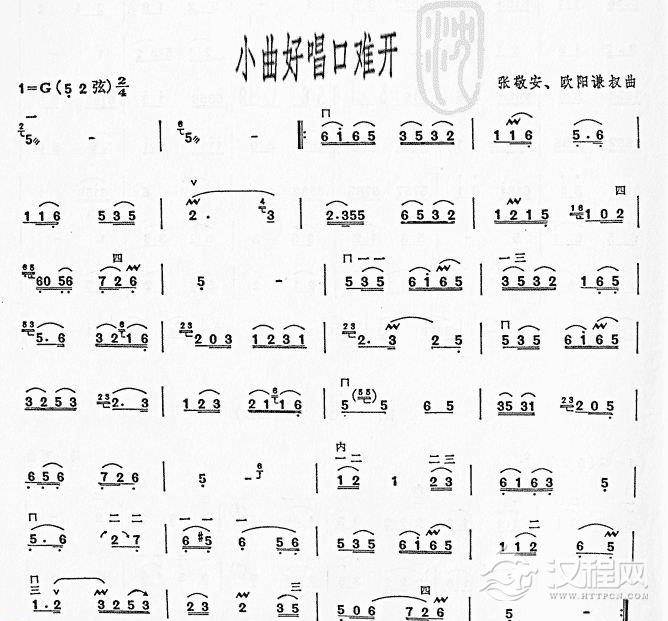 小曲好唱口难开
1=G(5 2 弦) 2/4
张敬安、欧阳谦叔曲
5 - 5 - 6 i 6 5 3 5 3 2 1 1 6 5 . 6
四
1 1 6 5 3 5 2 . 3 2.355 6 5 3 2 1 2 1 5 1 0 2
四 一一 一三
60 56 7 2 6 5 - 5 3 5 6 i 6 5 3 5 3 2 1 6 5
5. 6 3 2 1 6 2 0 3 1 2 3 1 2. 3 2 5 5 3 5 6 i 6 5
3 2 5 3 2. 3 1 2 3 2 1 1 6 5 5 5 6 5 35 31 2 0 5
内
一二 二三
6 5 6 7 2 6 5 - 1 2 1 2 3 6 1 6 3 5
二 二 一 一 一 二
5. 6 2 7 6 #5 6 5 6 5 3 5 6 i 6 5 1 1 2 6 5
三 四
1. 2 3 2 5 3 2 3 2 3 5 5 0 6 7 2 6 5 -
汉程网
WWW.HTTPCN.COM